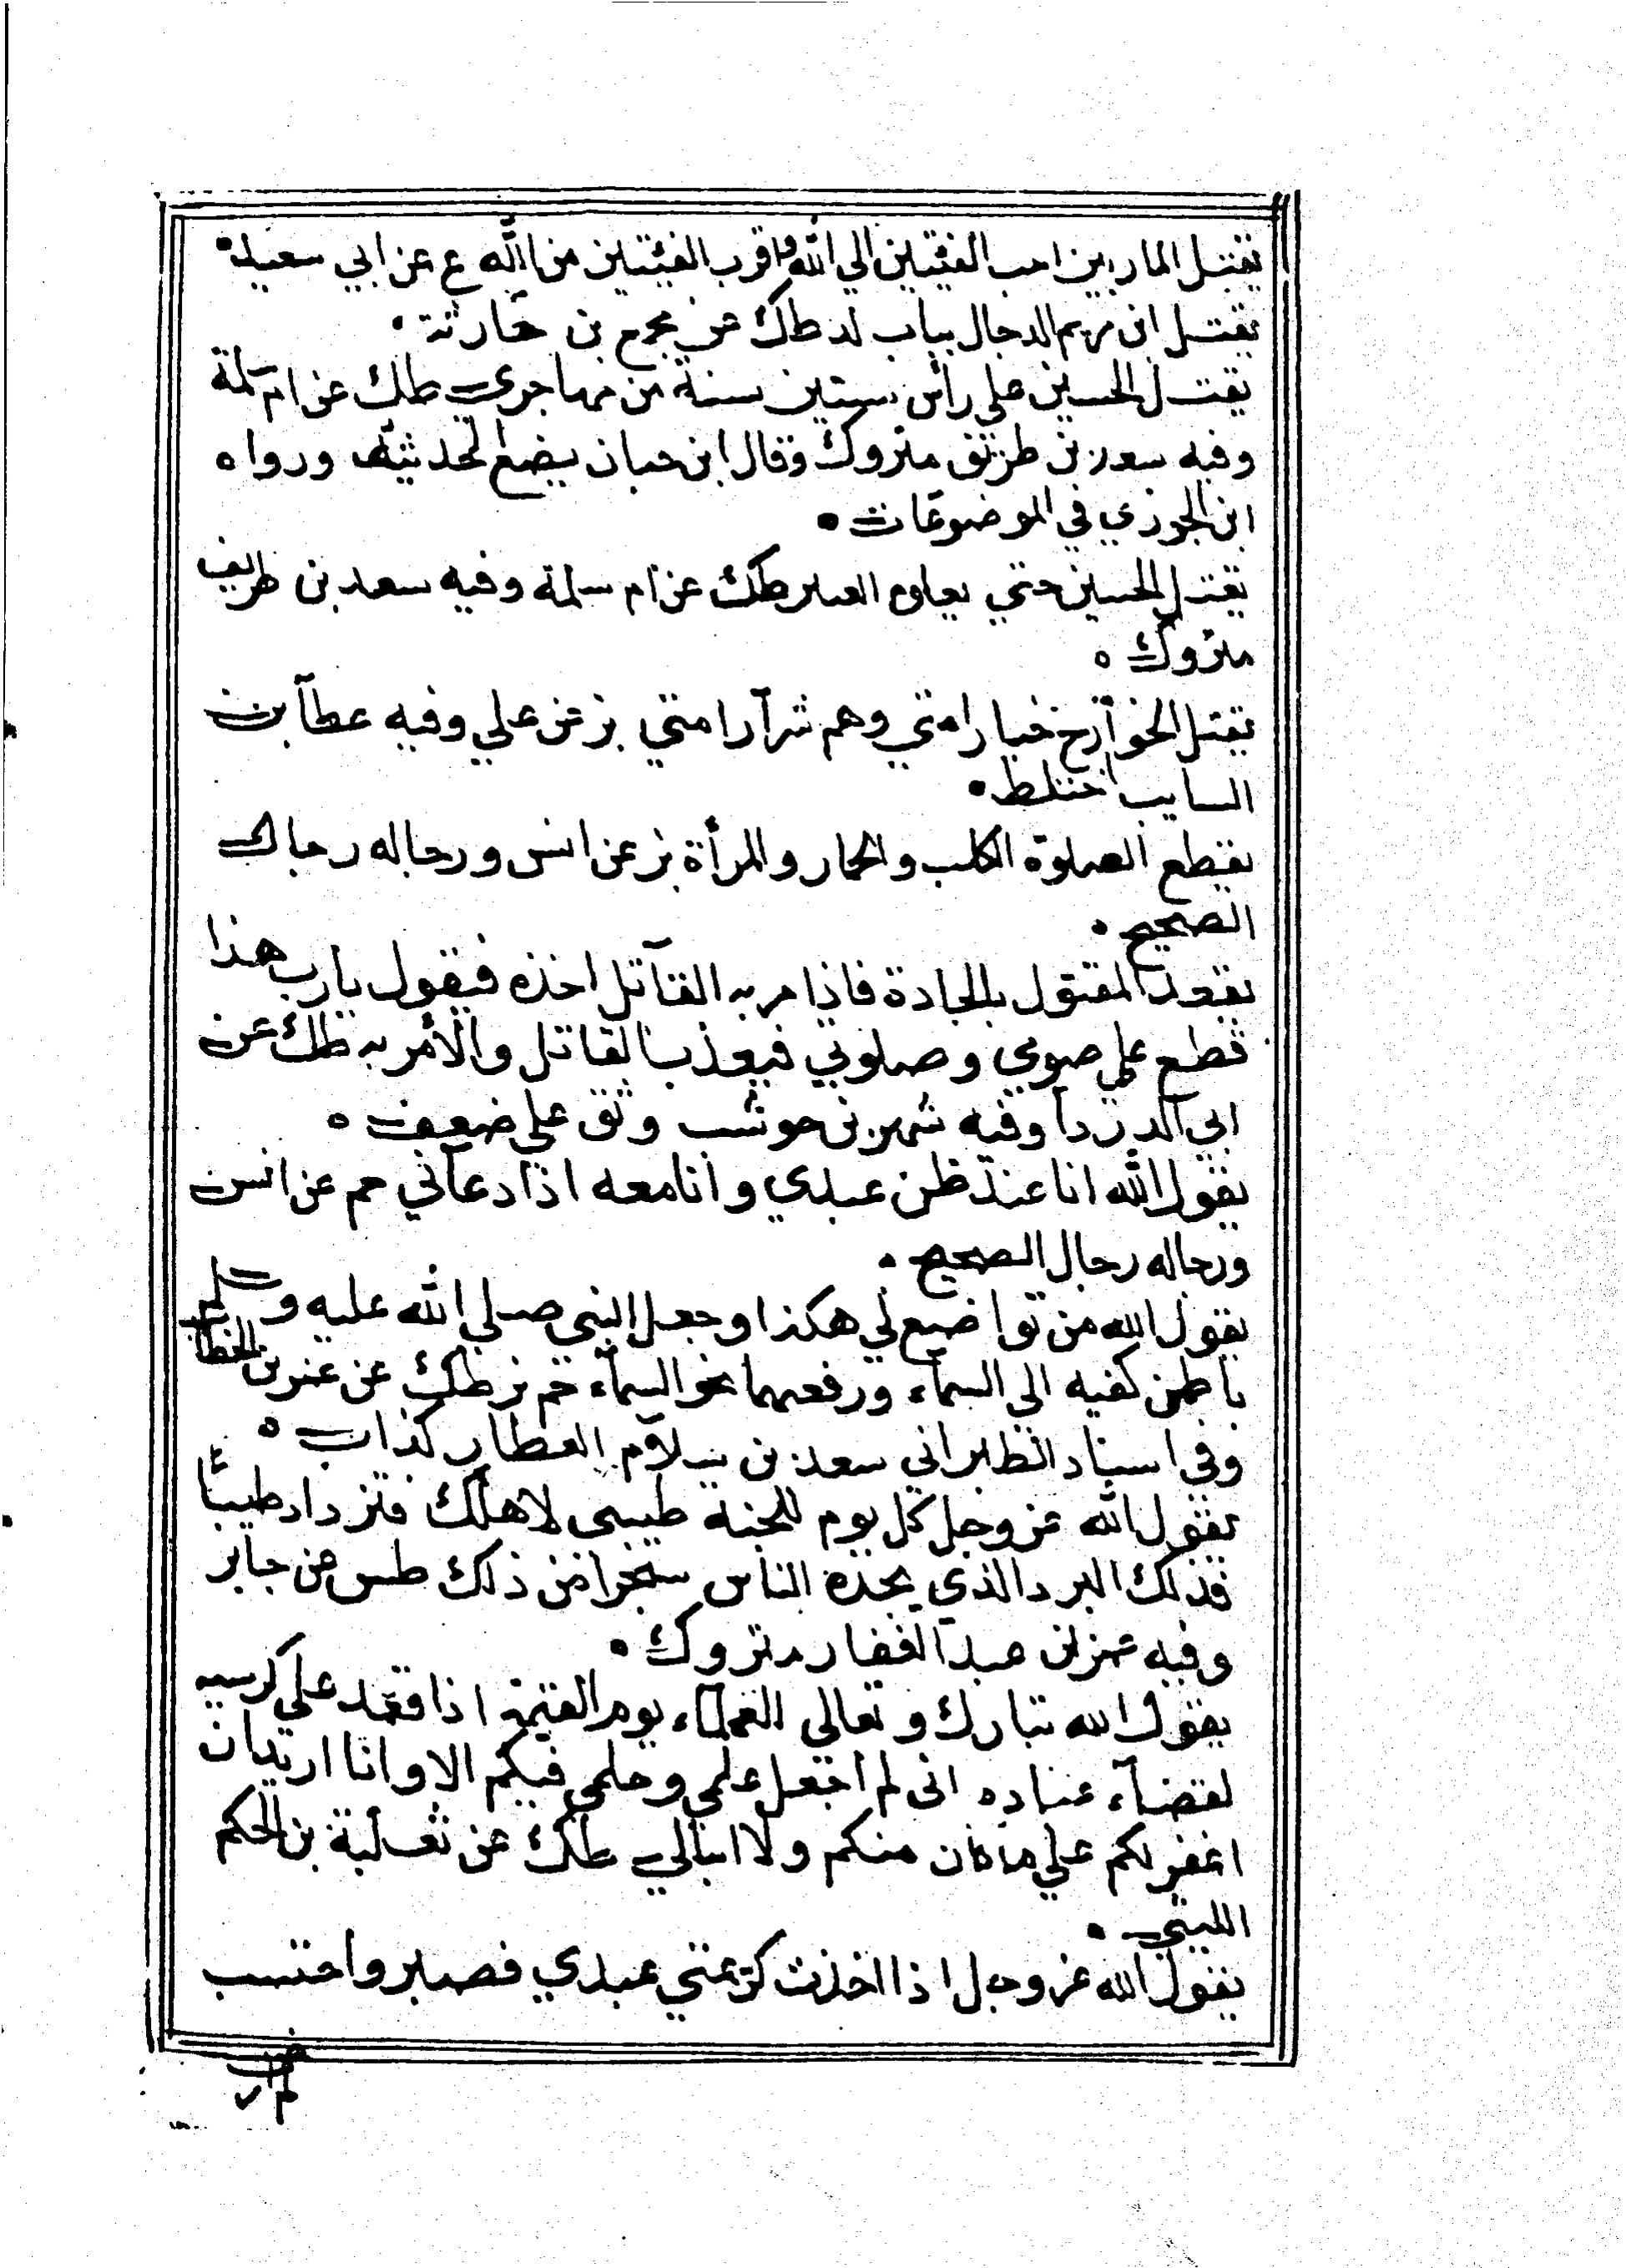 يقتل المارقين احب الفئتين الي الله واقرب الفئتين من الله ع عن ابي سعيد
يقتل ابن مريم الدجال بباب لد طك عن مجمع بن حارثة
يقتل الحسين علي رأس ستين سنة من مهاجري طك عن ام سلمة
وفيه سعد بن طريق متروك وقال ابن حبان يضع الحديث ورواه
ابن الجوزي في الموضوعات
يقتل الحسين حتي يعلوه القتير طك عن ام سلمة وفيه سعد بن طريف
متروك
يقتل الخوارج خيار امتي وهم شرار امتي بز عن علي وفيه عطآ بن
السايب اختلط
يقطع الصلوة الكلب والحمار والمرأة بز عن انس ورجاله رجال
الصحيح
يقعد المقتول بالجادة فاذا مر به القآتل اخذه فيقول يا رب هذا
قطع علي صومي وصلوتي فيعذب القاتل والأمر به طك عن
ابي الدردآ وفيه شهر بن حوشب وثق علي ضعفه
يقول الله انا عند ظن عبدي وانا معه اذا دعآني حم عن انس
ورجاله رجال الصحيح
يقول الله من تواضع لي هكذا وجعل النبي صلي الله عليه وسلم
باطن كفيه الي السمآء ورفعهما نحو السمآء حم بز طك عن عمر بن الخطاب
وفي اسناد الطبراني سعد بن سلآم العطار كذاب
يقول الله عز وجل كل يوم للجنة طيبي لاهلك فتزداد طيبًا
فذلك البرد الذي يجده الناس سحرا من ذلك طس عن جابر
وفيه عمر بن عبد الغفار متروك
يقول الله تبارك وتعالي للعلمآء يوم القيمة اذا قعد علي كرسيه
لقضآء عباده اني لم اجعل علمي وحلمي فيكم الا وانا اريد ان
اغفر لكم علي ما كان منكم ولا ابالي طك عن ثعلبة بن الحكم
الليثي
يقول الله عز وجل اذا اخذت كريمتي عبدي فصبر واحتسب
لم ارض